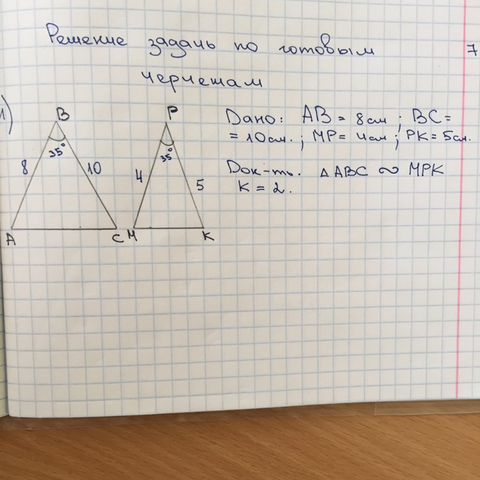 Решение задачь по готовым
чертежам
7
1)
Дано: AB = 8см ; BC =
= 10см. ; MP = 4см ; PK = 5см.
Док-ть. △ABC ∾ MPK
K = 2.
B
35°
8
10
A
C
P
35°
4
5
M
K